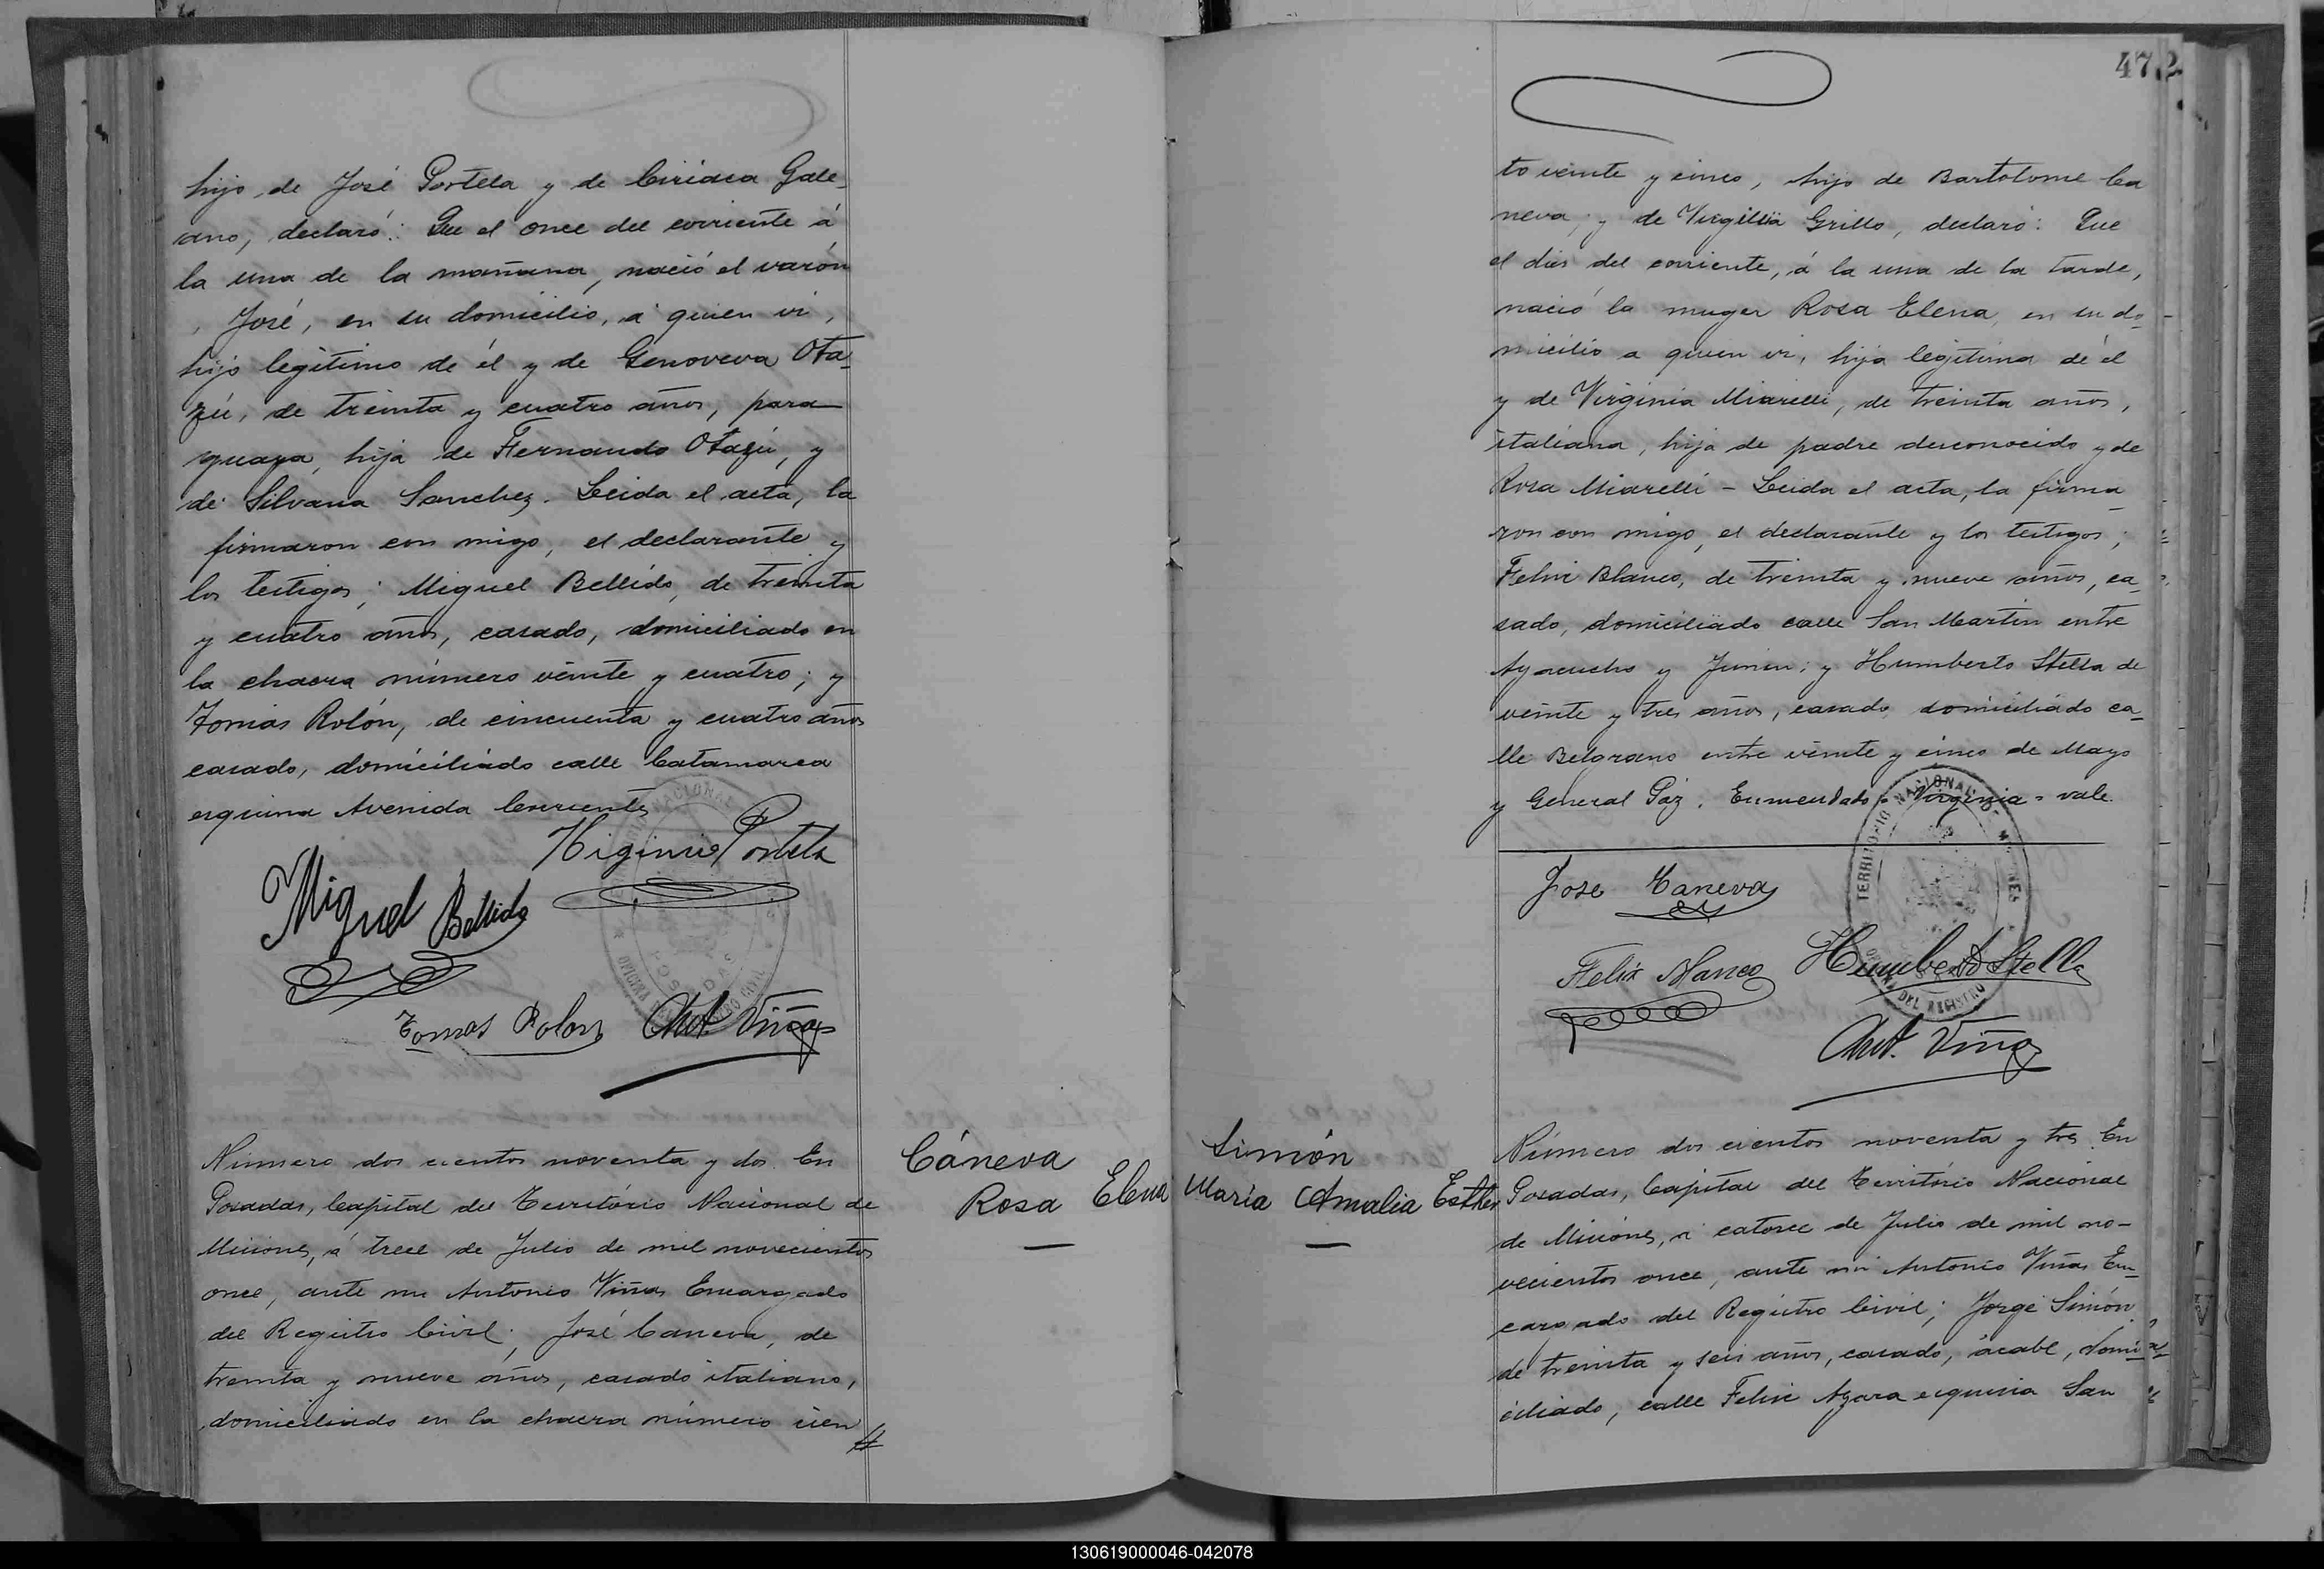 hijo de José Portela y de Ciriaca Gale-
ano, declaró: Que el once del corriente á
la una de la mañana, nació el varón
José, en su domicilio, á quien vi,
hijo legítimo de él y de Genoveva Ota-
zú, de treinta y cuatro años, para
guaya, hija de Fernando Otazú, y
de Silvana Sanchez. Leida el acta, la
firmaron con migo, el declarante y
los testigos; Miguel Bellido, de treinta
y cuatro años, casado, domiciliado en
la chacra número veinte y cuatro; y
Tomás Rolón, de cincuenta y cuatro años
casado, domiciliado calle Catamarca
esquina Avenida Corrientes
Higinio Portela
Miguel Bellido
Tomas Rolon Ant. Viñas
Número dos cientos noventa y dos. En
Posadas, Capital del Território Nacional de
Misiones, á trece de Julio de mil novecientos
once, ante mi Antonio Viñas Encargado
del Registro Civil; José Caneva, de
treinta y nueve años, casado italiano,
domiciliado en la chacra número cien
Cáneva
Rosa Elena
472
to veinte y cinco, hijo de Bartolome Ca
neva, y de Virgilia Grillo, declaró: Que
el dies del corriente, á la una de la tarde,
nació la muger Rosa Elena, en su do-
micilio a quien vi, hija legítima de él
y de Virginia Miarelli, de treinta años,
italiana, hija de padre desconocido y de
Rosa Miarelli - Leida el acta, la firma-
ron con migo, el declarante y los testigos;
Felix Blanco, de treinta y nueve años, ca-
sado, domiciliado calle San Martin entre
Ayacucho y Junin; y Humberto Stella de
veinte y tres años, casado, domiciliado ca-
lle Belgrano entre veinte y cinco de Mayo
y General Paz. Enmendado = Virginia = vale.
TERRITORIO NACIONAL DE MISIONES
DEL REGISTRO
Jose Caneva
Felix Blanco Humberto Stella
Ant. Viñas
Simón
Maria Amalia Esther
Número dos cientos noventa y tres. En
Posadas, Capital del Território Nacional
de Misiones, á catorce de Julio de mil no-
vecientos once, ante mi Antonio Viñas En-
cargado del Registro Civil; Jorge Simón
de treinta y seis años, casado, árabe, domi-
ciliado, calle Felix Azara esquina San
130619000046-042078